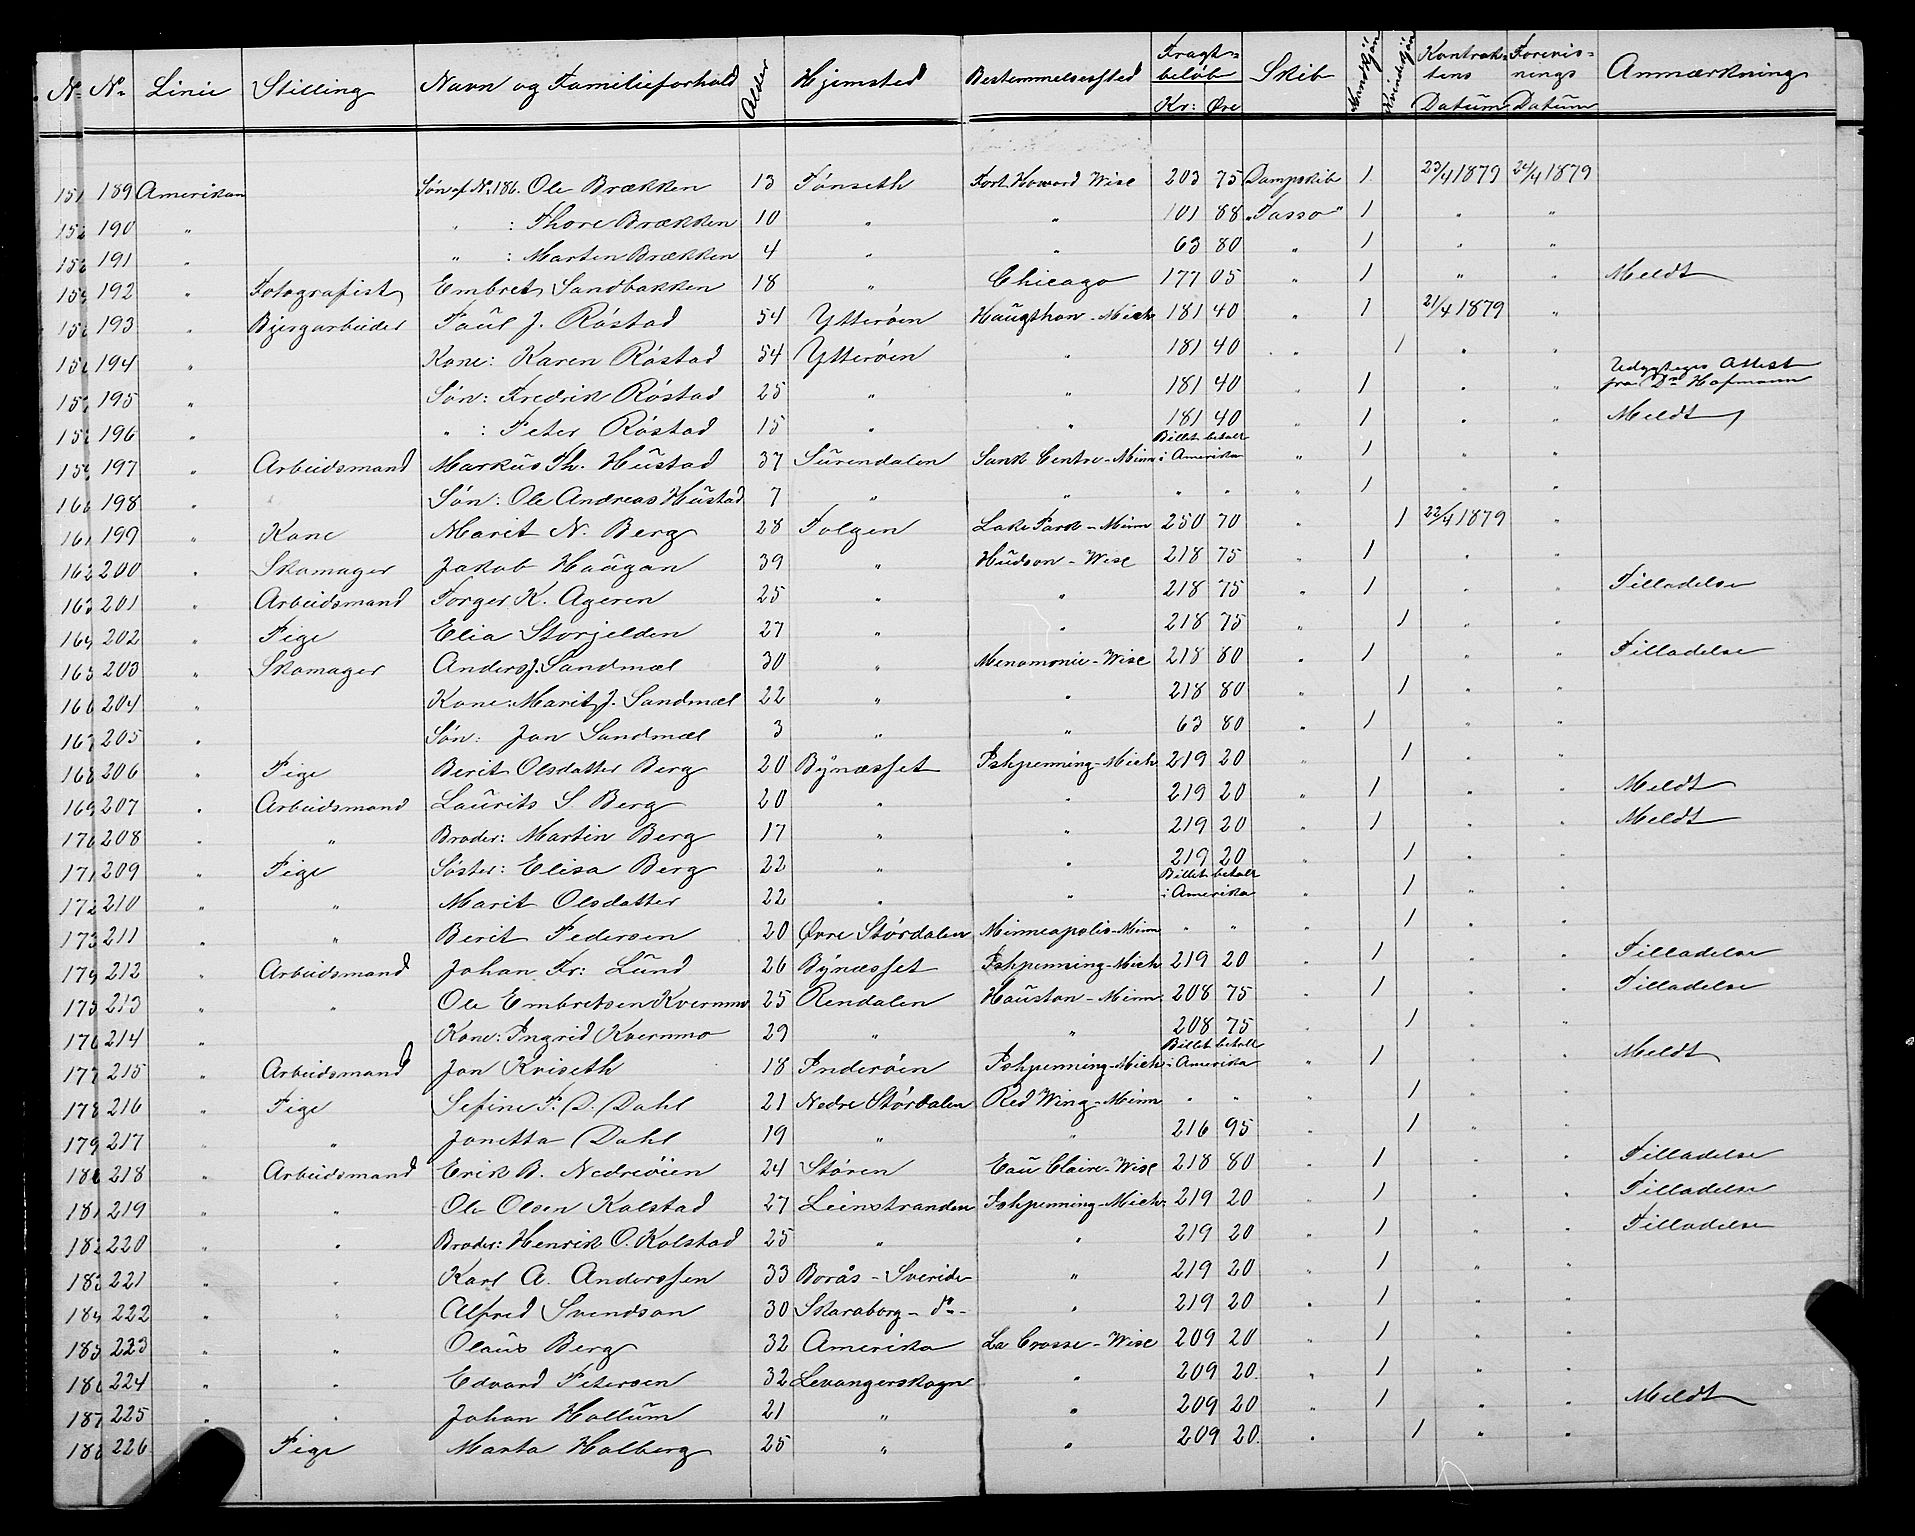 № Linie Stilling Navn og Familieforhold Alder Hjemsted Bestemmelsessted Fragt-beløb Kr: Øre Skib Mandkjön Kvindekjön Kontrak-tens Datum Forevis-nings Datum Anmærkning
189 Amerikan Søn af № 186. Ole Brækken 13 Tönseth Fort Howard Wisc 203 75 Dampskib 1 23/4 1879 24/4 1879
190 " " : Thore Brækken 10 " " 101 88 "Tasso" 1 " "
191 " " : Marten Brækken 4 " " 63 80 " 1 " "
192 " Fotografist Embret Sandbakken 18 " Chicago 177 05 " 1 " " Meldt
193 " Bjergarbeider Paul J. Röstad 54 Ytteröen Haugthon - Mich 181 40 " 1 21/4 1879 "
194 " Kone: Karen Röstad 54 Ytteröen " 181 40 " 1 " "
195 " Søn: Fredrik Röstad 25 " " 181 40 " 1 " " Udgytges Attest fra Dr Hofmann
196 " " : Peter Röstad 15 " " 181 40 " 1 " " Meldt
197 " Arbeidsmand Markus Th. Hustad 37 Surendalen Sank Centre - Minn Billet betalt i Amerika " 1 " "
198 " Søn: Ole Andreas Hustad 7 " " " " " 1 " "
199 " Kone Marit N. Berg 28 Tolgen Lake Park - Minn 250 70 " 1 22/4 1879 "
200 " Skomager Jakob Haugan 39 " Hudson - Wisc 218 75 " 1 " "
201 " Arbeidsmand Torger K. Ageren 25 " " 218 75 " 1 " " Tilladelse
202 " Pige Elia Storjelden 27 " " 218 75 " 1 " "
203 " Skomager Anders J. Sandmæl 30 " Menomonie - Wisc 218 80 " 1 " " Tilladelse
204 " Kone: Marit J. Sandmæl 22 " " 218 80 " 1 " "
205 " Søn: Jon Sandmæl 3 " " 63 80 " 1 " "
206 " Pige Berit Olsdatter Berg 20 Bynæsset Ishpenning - Mich 219 20 " 1 " "
207 " Arbeidsmand Laurits S. Berg 20 " " 219 20 " 1 " " Meldt
208 " " Broder: Martin Berg 17 " " 219 20 " 1 " " Meldt
209 " Pige Söster: Elisa Berg 22 " " 219 20 " 1 " "
210 " " Marit Olsdatter 22 " " Billet betalt i Amerika " 1 " "
211 " " Berit Pedersen 20 Øvre Stördalen Minneapolis - Minn " " " 1 " "
212 " Arbeidsmand Johan Fr: Lund 26 Bynæsset Ishpenning - Mich 219 20 " 1 " " Tilladelse
213 " " Ole Embretsen Kvernmo 25 Rendalen Houston - Minn 208 75 " 1 " " Tilladelse
214 " Kone: Ingrid Kvernmo 29 " " 208 75 " 1 " "
215 " Arbeidsmand Jon Kviseth 18 Inderöen Ishpenning - Mich Billet betalt i Amerika " 1 " " Meldt
216 " Pige Sefine P. D. Dahl 21 Nedre Stördalen Red Wing - Minn " " " 1 " "
217 " " Janetta Dahl 19 " " 216 95 " 1 " "
218 " Arbeidsmand Erik B. Nedreöien 24 Stören Eau Claire - Wisc 218 80 " 1 " " Tilladelse
219 " " Ole Olsen Kalstad 27 Leinstranden Ishpenning - Mich. 219 20 " 1 " " Tilladelse
220 " " Broder: Henrik O. Kolstad 25 " " 219 20 " 1 " " Tilladelse
221 " " Karl A. Anderssen 33 Borås - Sveride " 219 20 " 1 " "
222 " " Alfred Svendson 30 Skaraborg - do - " 219 20 " 1 " "
223 " " Olaus Berg 32 Amerika La Crosse - Wisc 209 20 " 1 " "
224 " " Edvard Petersen 32 Levangerskogn " 209 20. " 1 " "
225 " " Johan Hallum 21 " " 209 20 " 1 " " Meldt
226 Pige Marta Halberg 25 " " 209 20. " 1 " "